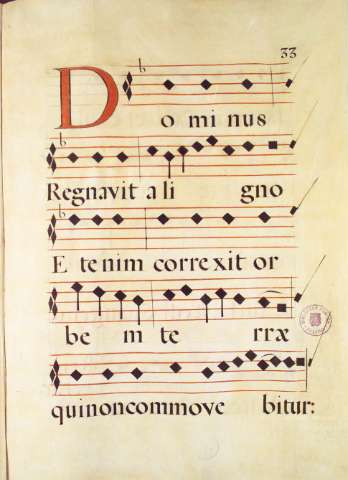 33
Dominus
Regnavit a li gno
E te nim correxit or
be m te rræ
qui non commove bitur: